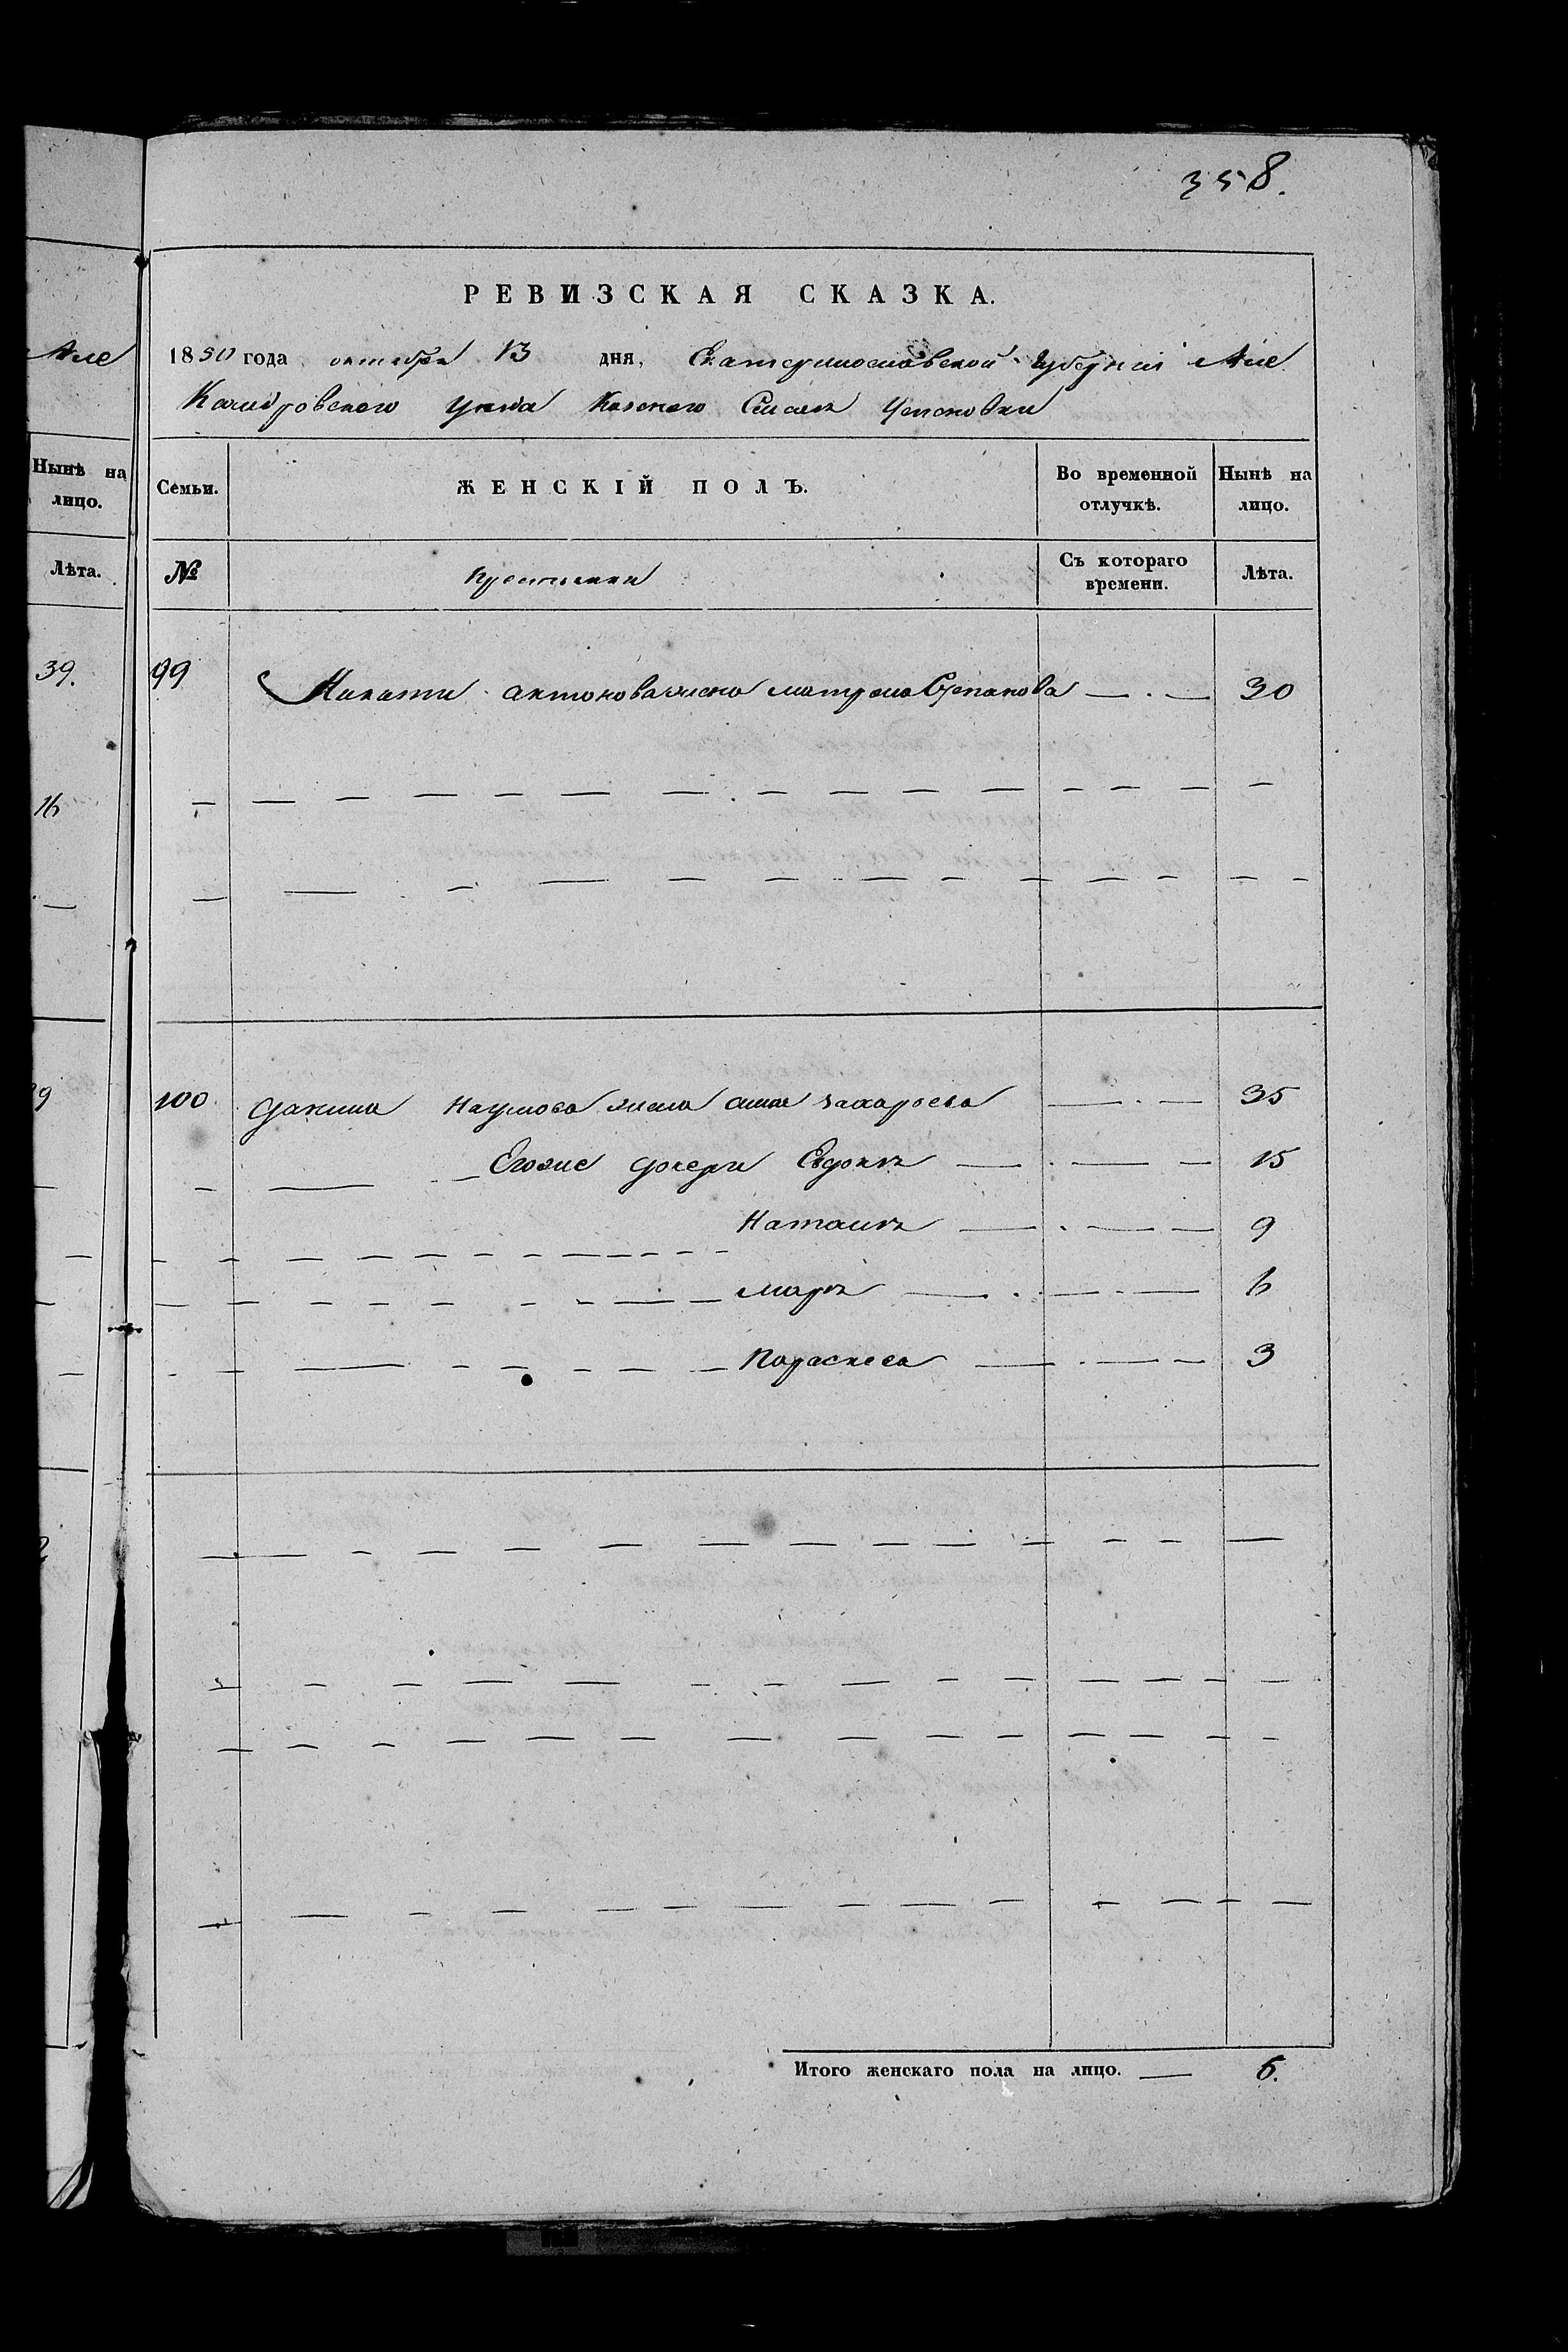 358.
РЕВИЗСКАЯ СКАЗКА.
Але 1850 года октября 13 дня, Екатеринославской Губернии Але
Уезда Казенаго
Нынѣ на лицо. Семьи. ЖЕНСКІЙ ПОЛЪ. Во временной отлучкѣ. Нынѣ на лицо.
Лѣта. № Крестьянки Съ котораго времени. Лѣта.
39. 99 Никиты антонова жена матрона Степанова — . — 30
16
100 Данила Наумова жена анна захарова — . — 35
Егоже дочери Евдокия — . — 15
Наталия — . — 9
мария — . — 6
Параскева — . — 3
Итого женскаго пола на лицо. — 6.